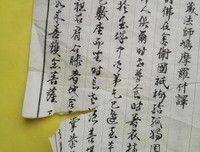 藏法師鳩摩羅什譯
時佛在舍衛國祇樹給孤獨園
人俱爾時世尊食時著衣持
於其城中次第乞已還至本
敷座而坐時長老
袒右肩右膝著地合掌恭
如來善護念諸菩薩